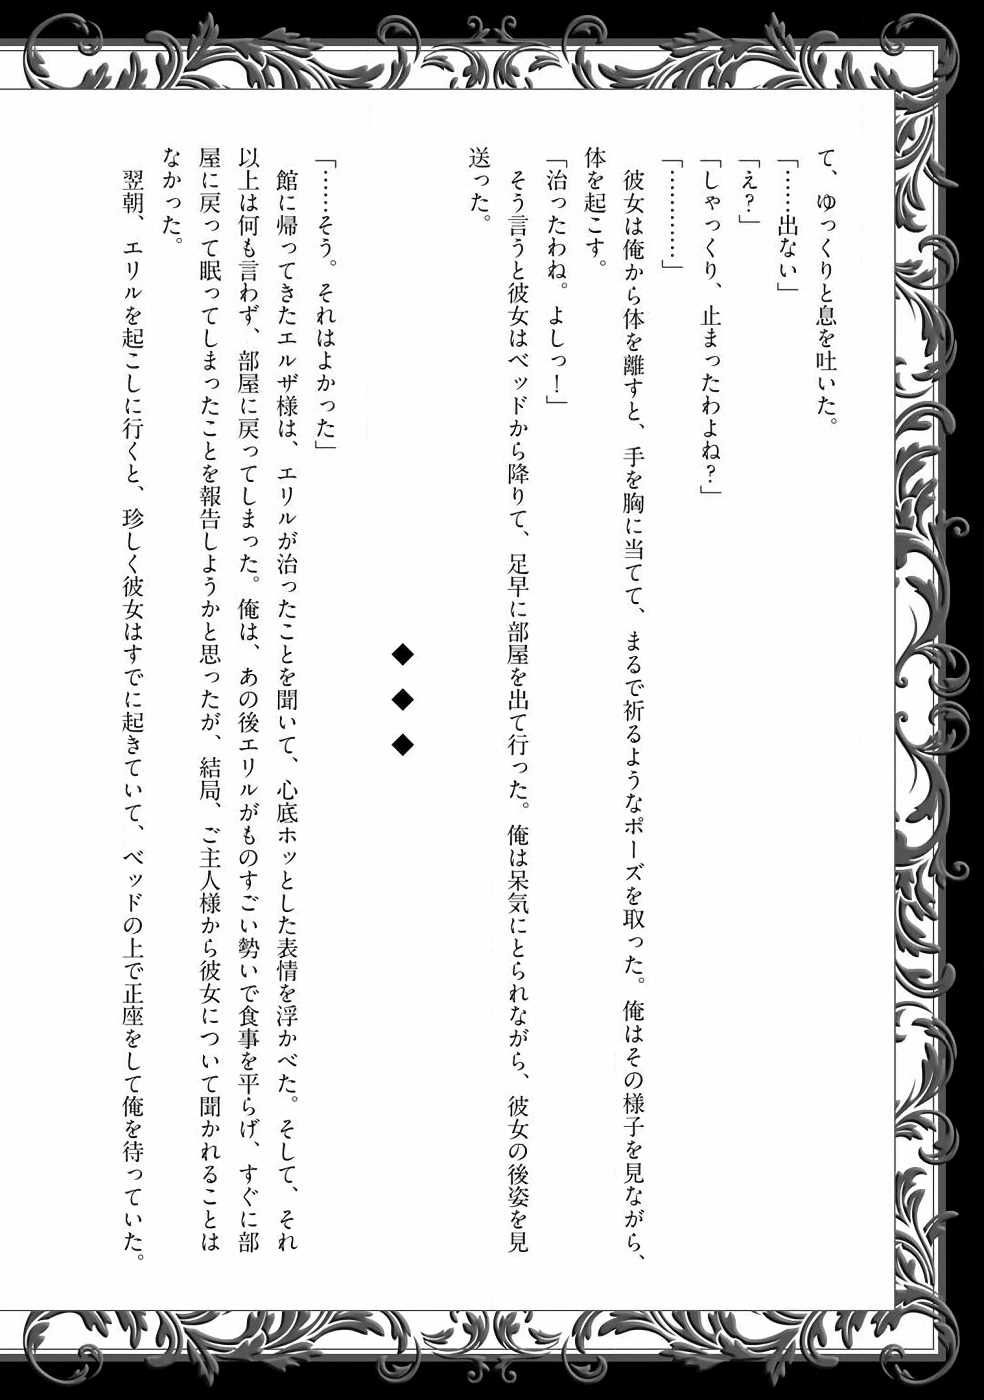 て、ゆっくりと息を吐いた。
「……出ない」
「え？」
「しゃっくり、止まったわよね？」
「…………」
彼女は俺から体を離すと、手を胸に当てて、まるで祈るようなポーズを取った。俺はその様子を見ながら、
体を起こす。
「治ったわね。よしっ！」
そう言うと彼女はベッドから降りて、足早に部屋を出て行った。俺は呆気にとられながら、彼女の後姿を見
送った。
◆◆◆
「……そう。それはよかった」
館に帰ってきたエルザ様は、エリルが治ったことを聞いて、心底ホッとした表情を浮かべた。そして、それ
以上は何も言わず、部屋に戻ってしまった。俺は、あの後エリルがものすごい勢いで食事を平らげ、すぐに部
屋に戻って眠ってしまったことを報告しようかと思ったが、結局、ご主人様から彼女について聞かれることは
なかった。
翌朝、エリルを起こしに行くと、珍しく彼女はすでに起きていて、ベッドの上で正座をして俺を待っていた。